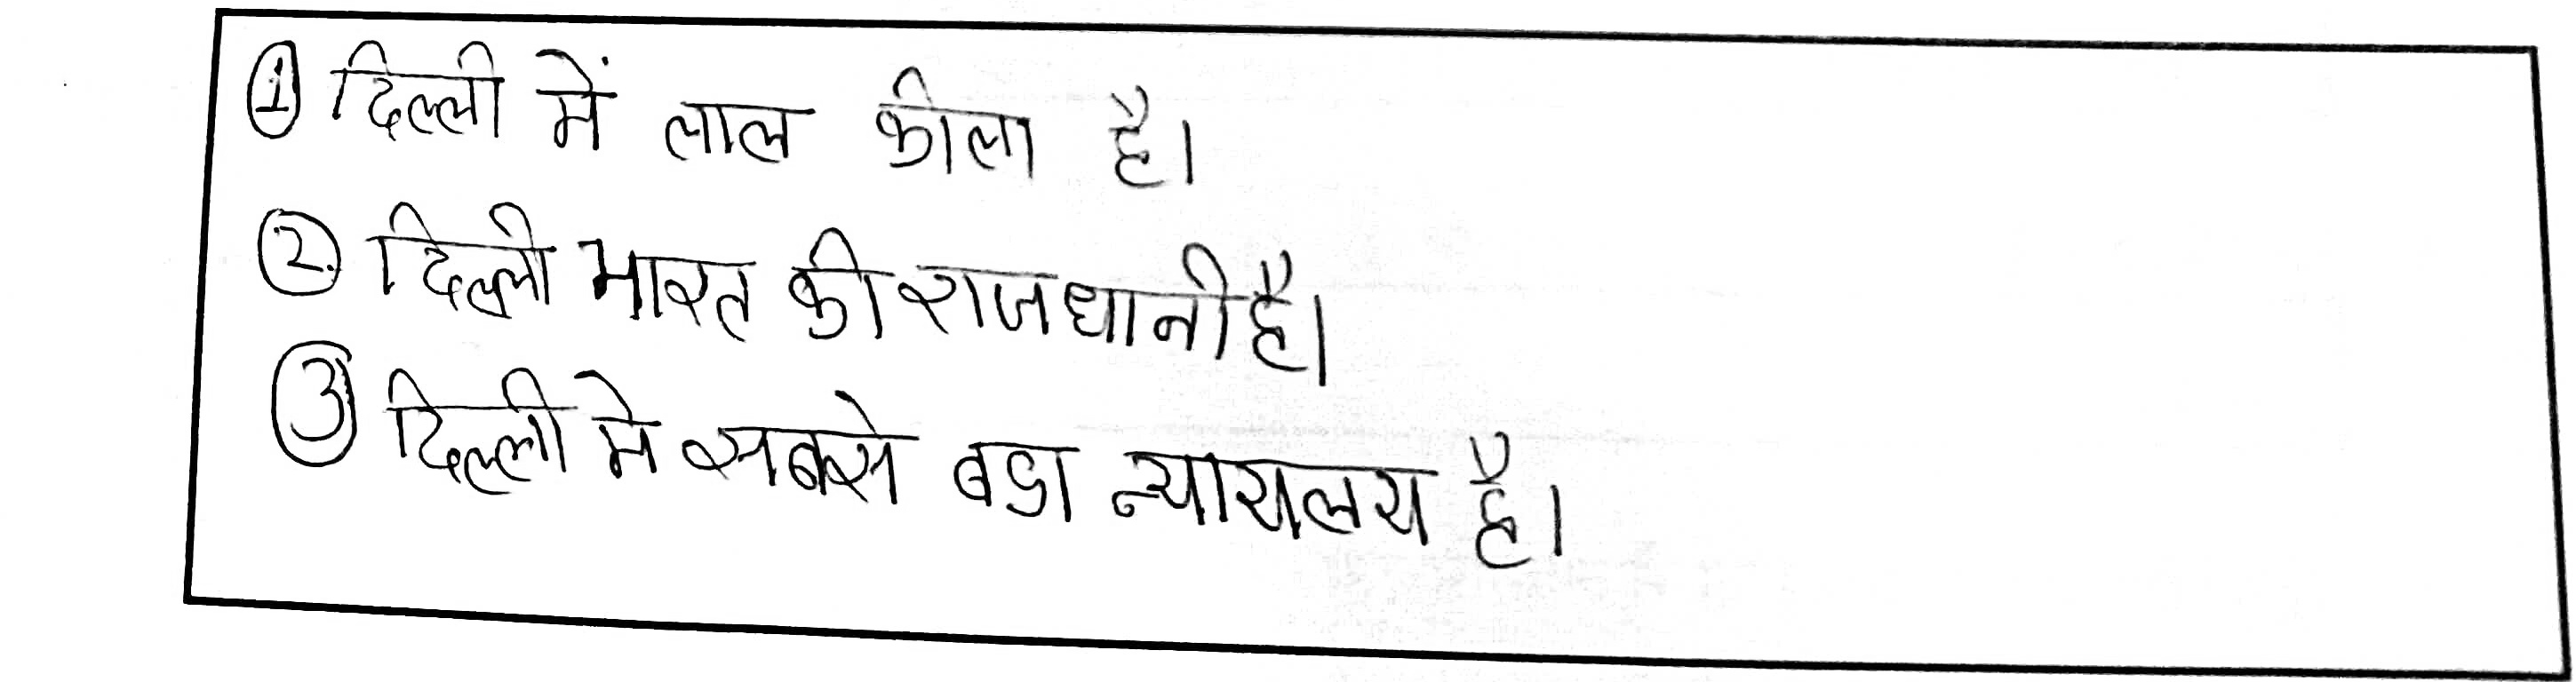 ① दिल्ली में लाल कीला है।
② दिल्ली भारत की राजधानी है।
③ दिल्ली मे सबसे बडा न्यायालय है।